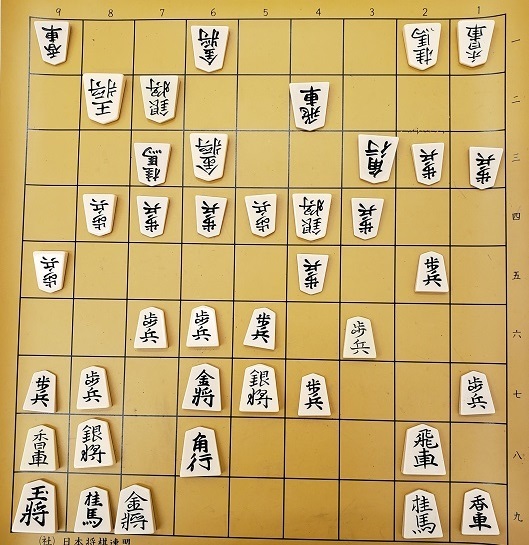 9 8 7 6 5 4 3 2 1
香車 金將 桂馬 香車 一
王将 銀将 飛車 二
桂馬 金將 角行 歩兵 歩兵 三
歩兵 歩兵 歩兵 歩兵 銀将 歩兵 四
歩兵 歩兵 歩兵 五
歩兵 歩兵 歩兵 歩兵 六
歩兵 歩兵 金將 銀将 歩兵 歩兵 七
香車 銀将 角行 飛車 八
玉将 桂馬 金將 桂馬 香車 九
(社) 日本将棋連盟